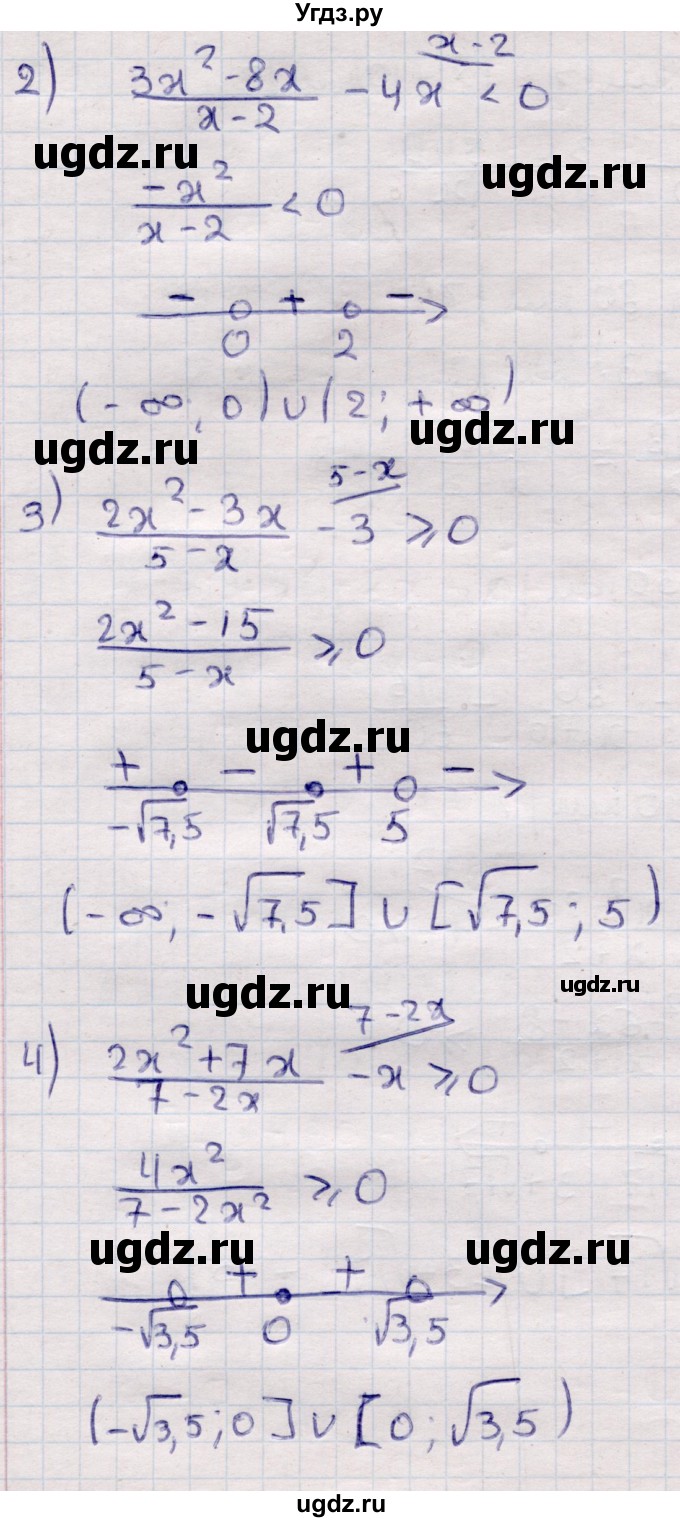 Угдз.ру
x-2
2) (3x² - 8x)/(x - 2) - 4x < 0
ugdz.ru ugdz.ru
(-x²)/(x - 2) < 0
- + -
0 2
(-∞; 0) ∪ (2; +∞)
ugdz.ru ugdz.ru
5-x
3) (2x² - 3x)/(5 - x) - 3 ⩾ 0
(2x² - 15)/(5 - x) ⩾ 0
ugdz.ru
+ - + -
-√7,5 √7,5 5
(-∞; -√7,5] ∪ [√7,5; 5)
ugdz.ru ugdz.ru
7-2x
4) (2x² + 7x)/(7 - 2x) - x ⩾ 0
(4x²)/(7 - 2x²) ⩾ 0
ugdz.ru ugdz.ru
+ +
-√3,5 0 √3,5
(-√3,5; 0] ∪ [0; √3,5)
ugdz.ru